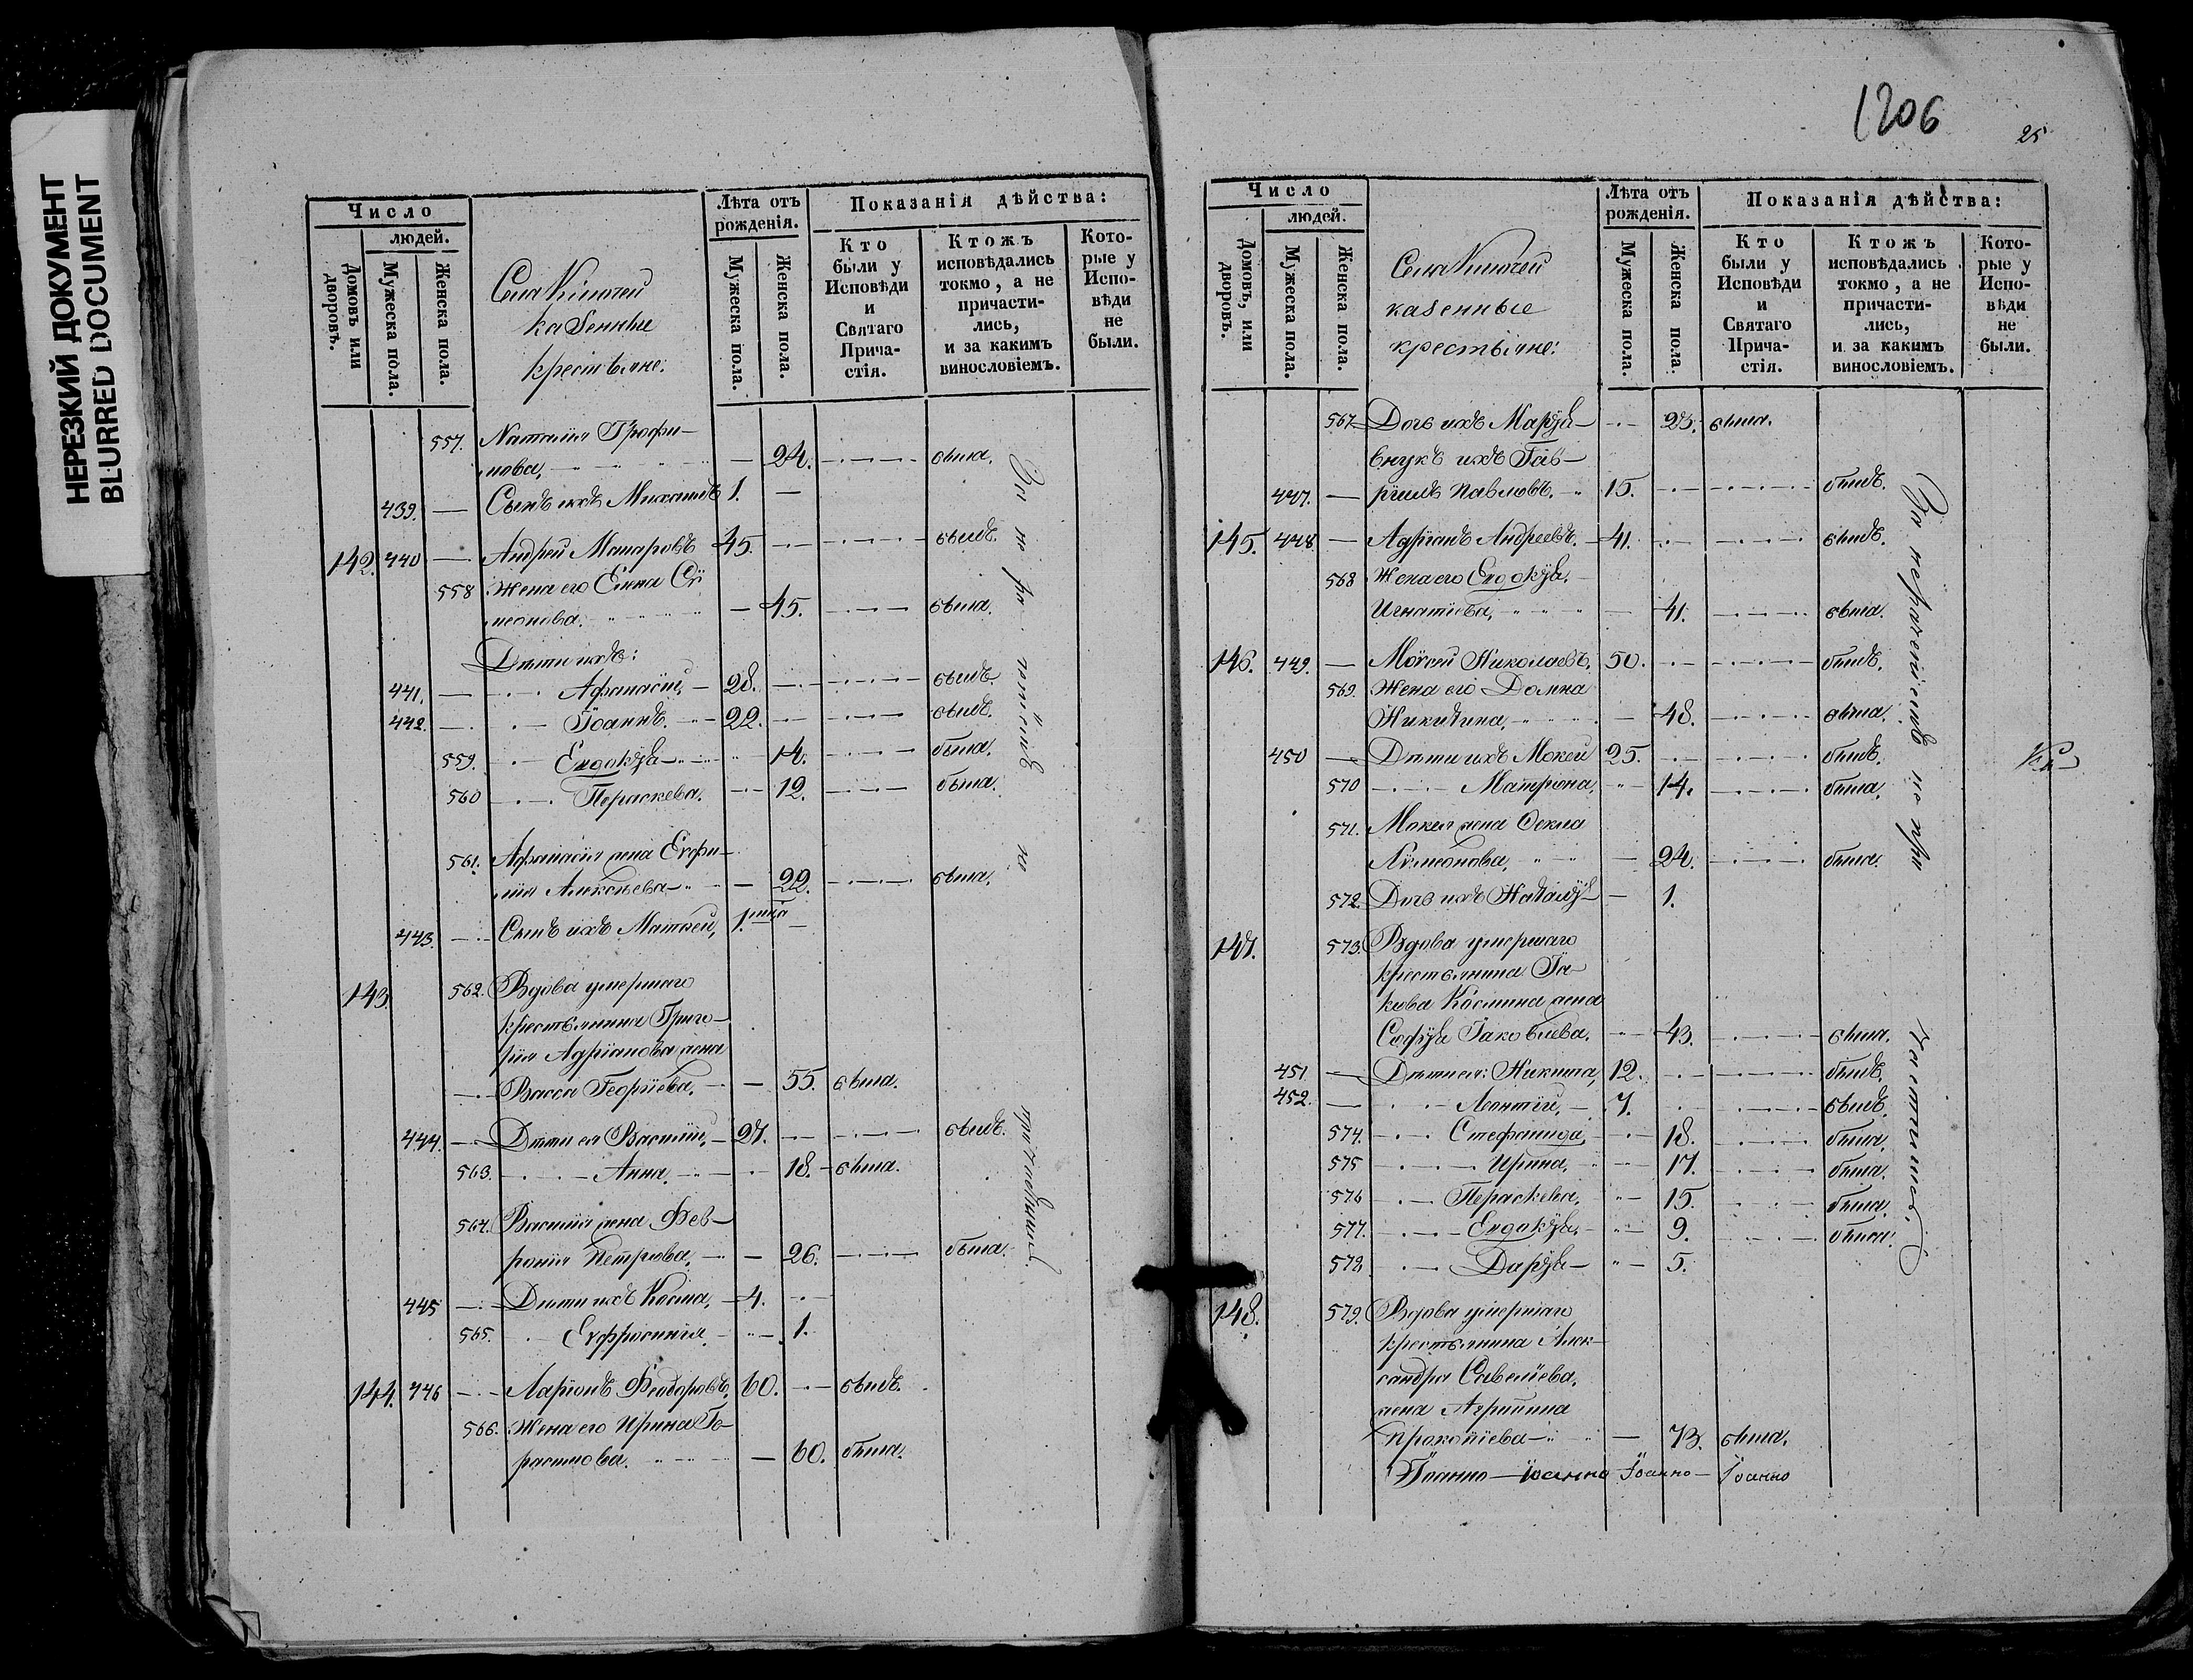 НЕРЕЗКИЙ ДОКУМЕНТ
BLURRED DOCUMENT
Число
людей.
Домовъ или дворовъ.
Мужеска пола.
Женска пола.
Села
казенные
крестьяне:
Лѣта отъ рожденія.
Мужеска пола.
Женска пола.
Показанія дѣйства:
Кто были у Исповѣди и Святаго Прича-стія.
Ктожъ исповѣдались токмо, а не причасти-лись, и за какимъ винословіемъ.
Кото-рые у Испо-вѣди не были.
557. Наталія Трофи-
мова, 24. была.
439. Сынъ ихъ Михаилъ 1.
142. 440 Андрей Макаровъ 45. былъ.
558 Жена его Елена Сѵ
меонова. 45. была.
Дѣти ихъ:
441. Афанасій, 28. былъ.
442. Іоаннъ. 22. былъ.
559. Евдокія 14. была.
560 Пераскева. 12. была.
561. Афанасія жена Евфи-
мія Алексѣева 22. была.
443. Сынъ ихъ Матѳей, 1.
143. 562. Вдова умершаго
крестьянина Григо-
рія Адріанова жена
Васса Георгіева, 55. была.
444. Дѣти ея Василій, 27. былъ.
563. Анна, 18. была.
564. Василія жена Фев-
ронія Петрова, 26. была.
445 Дѣти ихъ Косма, 4.
565. Евфросинія 1.
144. 446 Ларіонъ Феодоровъ, 60. былъ.
566. Жена его Ирина
60. была.
1206
25
Число
людей.
Домовъ, или дворовъ.
Мужеска пола.
Женска пола.
Села
казенные
крестьяне:
Лѣта отъ рожденія.
Мужеска пола.
Женска пола.
Показанія дѣйства:
Кто были у Исповѣди и Святаго Прича-стія.
Ктожъ исповѣдались токмо, а не причасти-лись, и за какимъ винословіемъ.
Кото-рые у Испо-вѣди не были.
567 Дочь ихъ Марія 23. была.
внукъ ихъ Гав-
447. ріилъ Павловъ. 15. былъ.
145. 448. Адріанъ Андреевъ. 41. былъ.
568 Жена его Евдокія
Игнатіева, 41. была.
146. 449. Моѵсей Николаевъ. 50. былъ.
569. Жена его Домна
Никитина, 48. была.
450 Дѣти ихъ Мокей 25. былъ.
570 Матрона, 14. была.
571. Мокея жена Ѳекла
Сѵмеонова, 24. была.
572. Дочь ихъ Наталія 1.
147. 573. Вдова умершаго
крестьянина Іа-
кова Космина жена
Софія Іаковлева. 43. была.
451 Дѣти ея: Никита, 12. былъ.
452. Леонтій, 7. былъ.
574. Стефанида, 18. была.
575 Ирина, 17. была.
576 Пераскева, 15. была.
577. Евдокія, 9. была.
578 Дарія 5.
148. 579. Вдова умершаго
крестьянина Алек-
сандра Савелиева,
жена Агрипина
Прокопіева 73. была.
Іоанно Іоанно Іоанно Іоанно